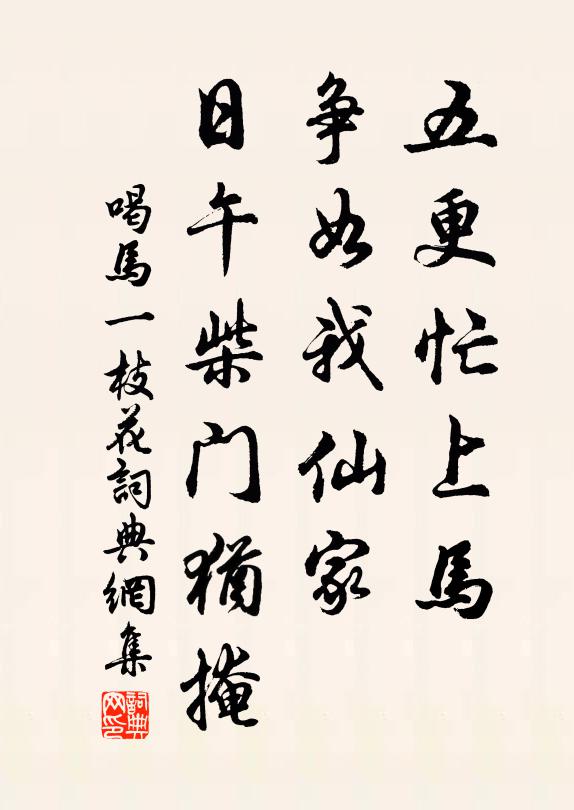 五更忙上馬
争如我仙家
日午柴门猶掩
喝馬一枝花詞典網集
詞典
网印